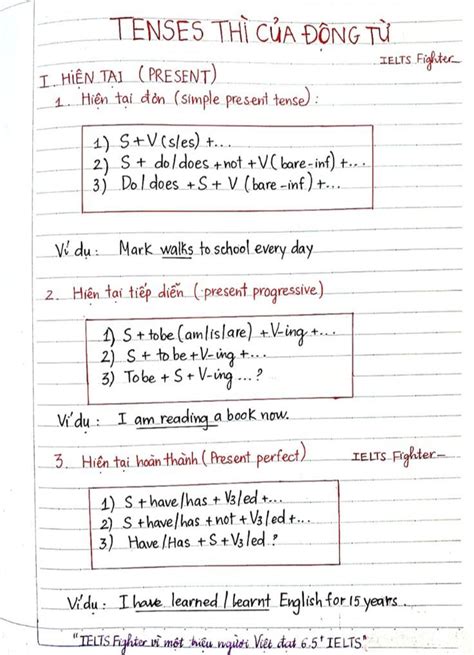 TENSES THÌ CỦA ĐỘNG TỪ
IELTS Fighter
I. HIỆN TẠI (PRESENT)
1. Hiện tại đơn (simple present tense) :
1) S+V(s/es) +...
2) S + do/does +not +V(bare-inf) +...
3) Do/does +S + V (bare-inf.) +...
Ví dụ : Mark walks to school every day
2. Hiện tại tiếp diễn (present progressive)
1) S + tobe (am/is/are) +V-ing +...
2) S + to be +V-ing +...
3) Tobe + S + V-ing ...?
Ví dụ : I am reading a book now.
3. Hiện tại hoàn thành (Present perfect)
IELTS Fighter
1) S +have/has + V3/ed +...
2) S +have/has +not +V3/ed +...
3) Have/Has +S +V3/ed ?
Ví dụ : I have learned / learnt English for 15 years.
"IELTS Fighter vì một triệu người Việt đạt 6.5+ IELTS"